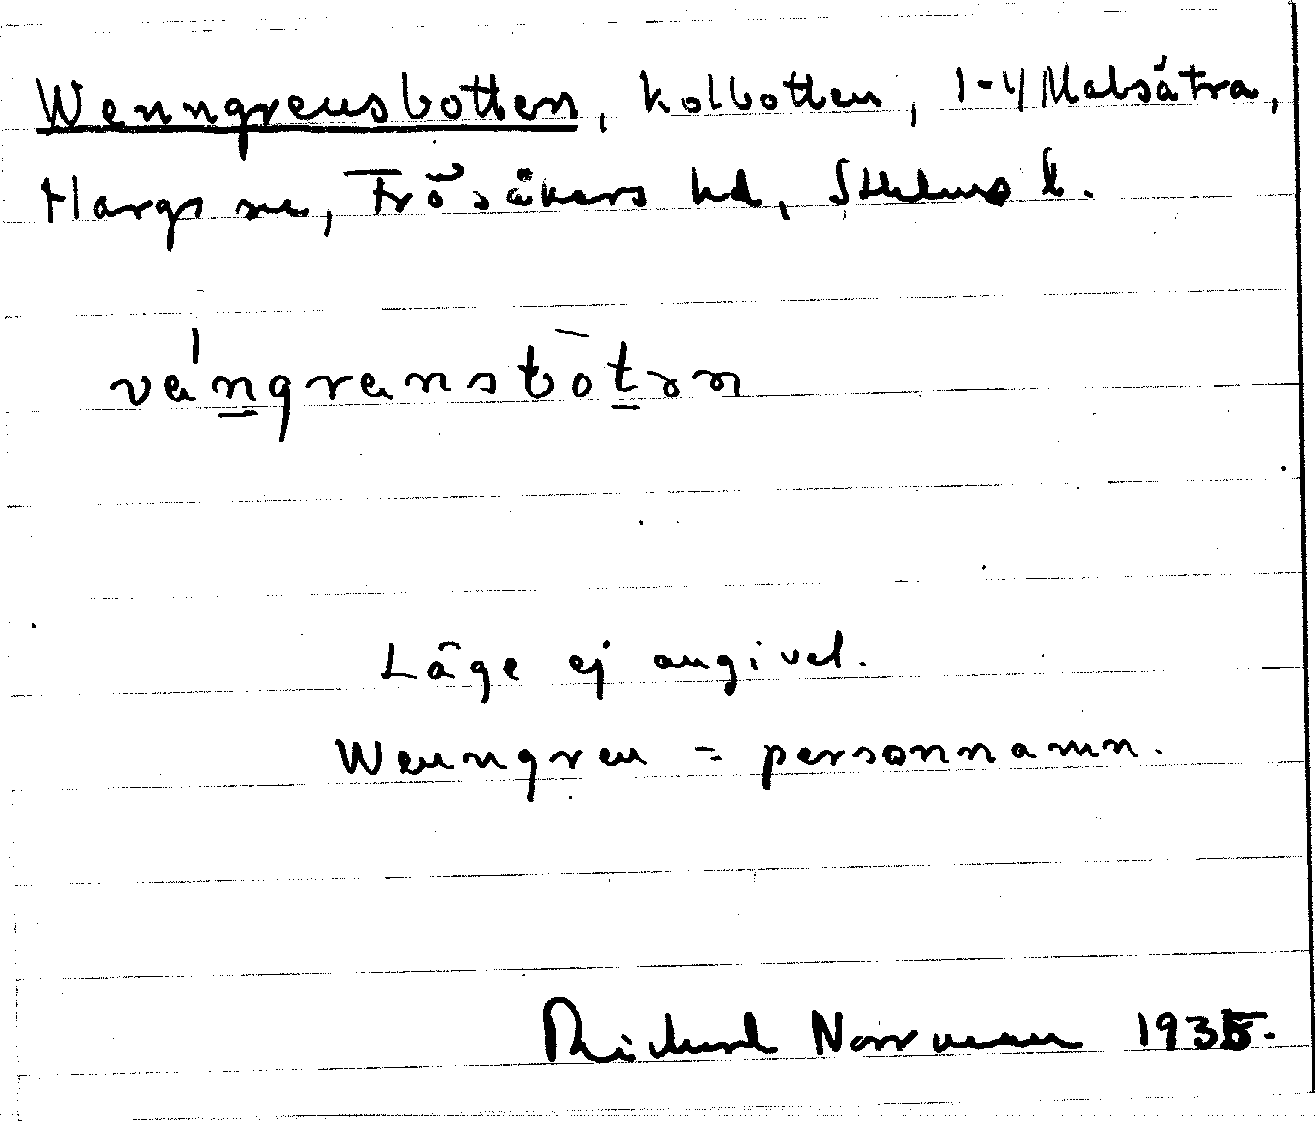 Wenngrensbotten, kolbotten, 1-4 Malsätra,
Hargs sn, Frösåkers hd, Sthlms l.
vangrensbotən
Läge ej angivet.
Wenngren = personnamn.
Richard Norrman 1935.